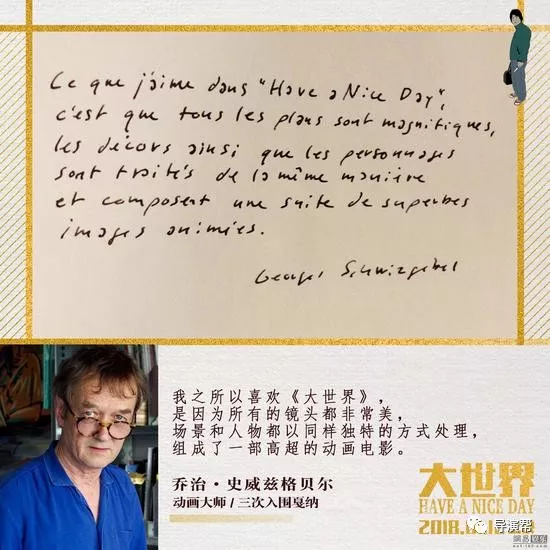 Ce que j'aime dans "Have a Nice Day",
c'est que tous les plans sont magnifiques,
les décors ainsi que les personnages
sont traités de la même manière
et composent une suite de superbes
images animées.
Georges Schwizgebel
我之所以喜欢《大世界》，
是因为所有的镜头都非常美，
场景和人物都以同样独特的方式处理，
组成了一部高超的动画电影。
乔治·史威兹格贝尔
动画大师 / 三次入围戛纳
大世界
HAVE A NICE DAY
2018.
导演帮